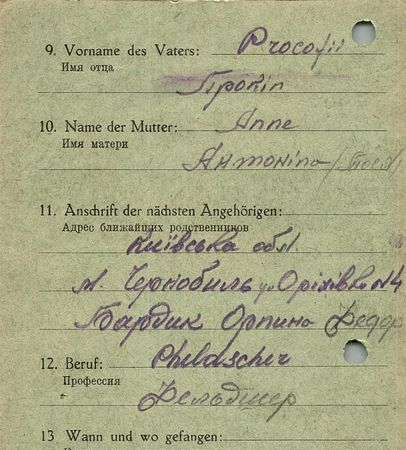 9. Vorname des Vaters: Procofii
Имя отца
Прокіп
10. Name der Mutter: Anne
Имя матери
Антоніна
11. Anschrift der nächsten Angehörigen:
Адрес ближайших родственников
Київська обл.
м. Чернобиль
Бардик Орпина Федор
12. Beruf: Pheldscher
Профессия
Фельдшер
13 Wann und wo gefangen: